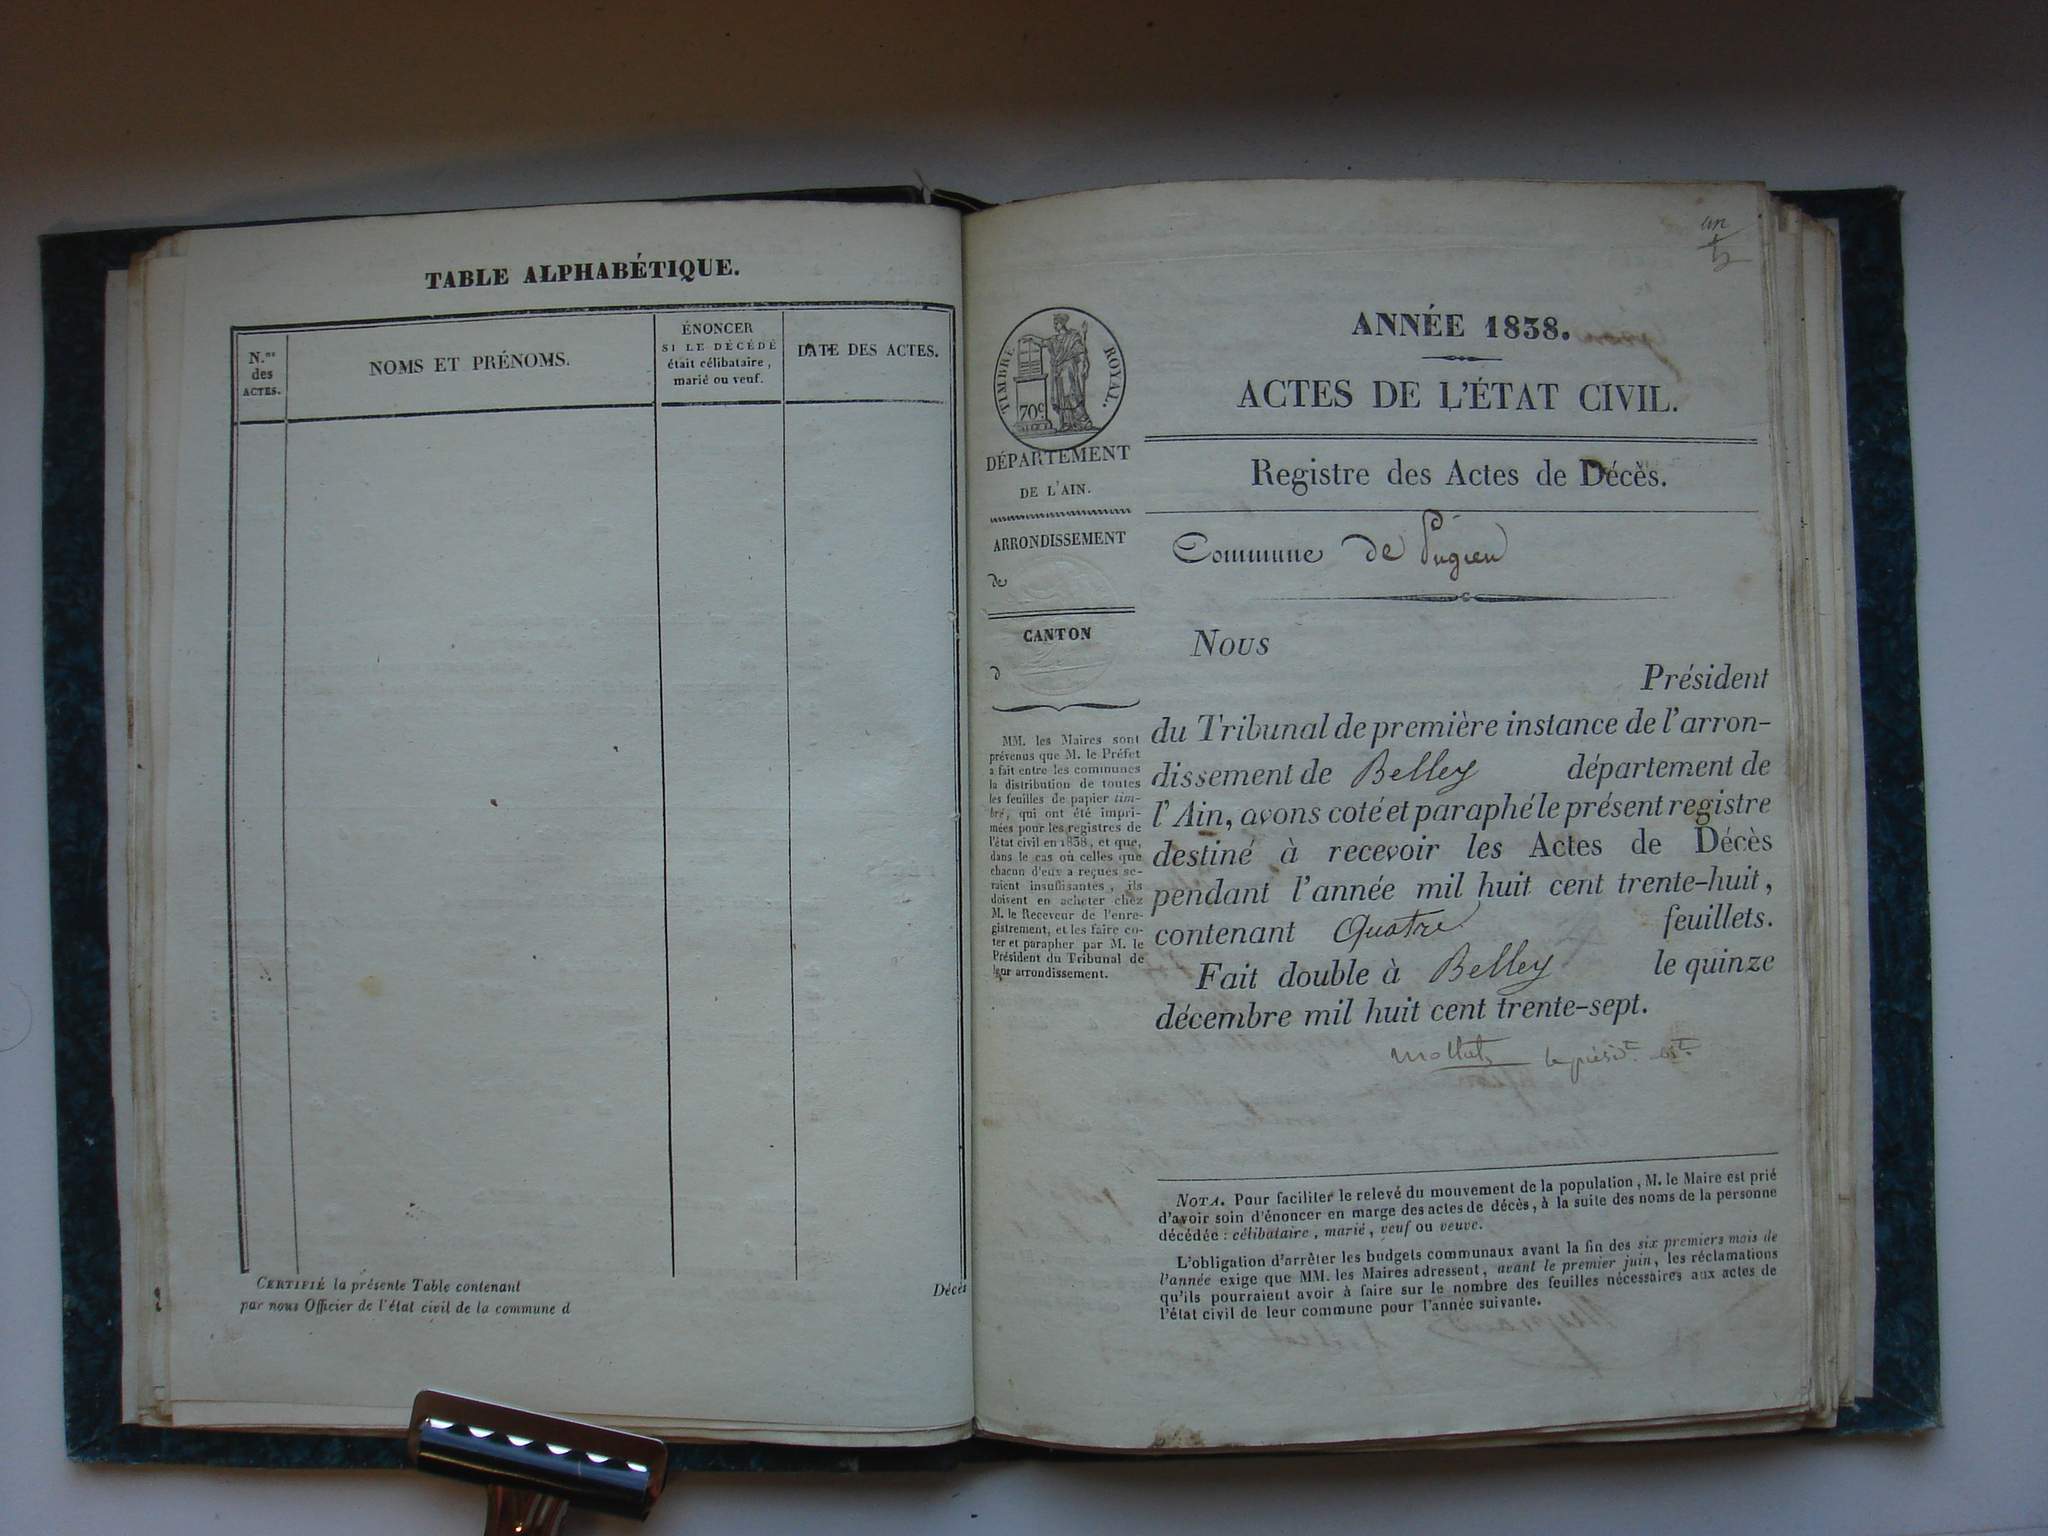 TABLE ALPHABÉTIQUE.
N.os
des
ACTES.
NOMS ET PRÉNOMS.
ÉNONCER
SI LE DÉCÉDÉ
était célibataire,
marié ou veuf.
DATE DES ACTES.
CERTIFIÉ la présente Table contenant
Décès
par nous Officier de l'état civil de la commune d
un
TIMBRE ROYAL.
70c
DÉPARTEMENT
DE L'AIN.
ARRONDISSEMENT
de
CANTON
d
MM. les Maires sont
prévenus que M. le Préfet
a fait entre les communes
la distribution de toutes
les feuilles de papier tim-
bré, qui ont été impri-
mées pour les registres de
l'état civil en 1838, et que,
dans le cas où celles que
chacun d'eux a reçues se-
raient insuffisantes, ils
doivent en acheter chez
M. le Receveur de l'enre-
gistrement, et les faire co-
ter et parapher par M. le
Président du Tribunal de
leur arrondissement.
ANNÉE 1838.
ACTES DE L'ÉTAT CIVIL.
Registre des Actes de Décès.
Commune de Pugieu
Nous
Président
du Tribunal de première instance de l'arron-
dissement de Belley département de
l'Ain, avons coté et paraphé le présent registre
destiné à recevoir les Actes de Décès
pendant l'année mil huit cent trente-huit,
contenant Quatre feuillets.
Fait double à Belley le quinze
décembre mil huit cent trente-sept.
le présidt
NOTA. Pour faciliter le relevé du mouvement de la population, M. le Maire est prié
d'avoir soin d'énoncer en marge des actes de décès, à la suite des noms de la personne
décédée : célibataire, marié, veuf ou veuve.
L'obligation d'arrêter les budgets communaux avant la fin des six premiers mois de
l'année exige que MM. les Maires adressent, avant le premier juin, les réclamations
qu'ils pourraient avoir à faire sur le nombre des feuilles nécessaires aux actes de
l'état civil de leur commune pour l'année suivante.